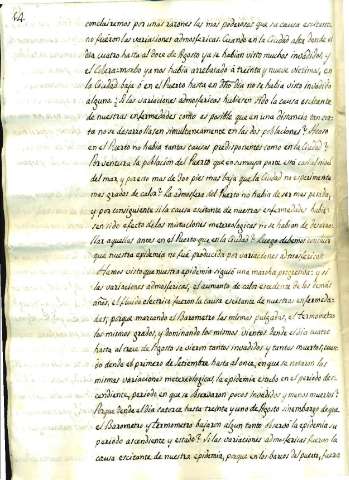 64.
concluiremos por unas razones las mas poderosas que su causa escitante
no fueron las variaciones admosfericas. Cuando en la Ciudad alta desde el
dia cuatro hasta el doce de Agosto ya se habian visto muchos invadidos, y
el Colera-morbo ya nos habia arrebatado á treinta y nueve victimas, en
la Ciudad baja ó en el Puerto hasta en dho dia no se habia visto invadido
alguno? Si las variaciones admosfericas hubiesen sido la causa escitante
de nuestras enfermedades como es posible que en una distancia tan cor-
ta no se desarrollasen simultaneamente en las dos poblaciones? Acaso
en el Puerto no habia tantas causas predisponentes como en la Ciudad?
Por ventura la poblacion del Puerto que en su mayor parte está casi al nivel
del mar, y para mas de dos pies mas baja que la Ciudad no esperimenta
mas grados de calor? La admosfera del Puerto no habia de ser mas pesada,
y por consiguiente si la causa escitante de nuestras enfermedades hubie-
sen sido efecto de las mutaciones meteorologicas no se habian de desarro-
llar aquellas antes en el Puerto que en la Ciudad? Luego debemos concluir
que nuestra epidemia no fué producida por variaciones admosfericas.
Hemos visto que nuestra epidemia siguió una marcha progresiva: y si
las variaciones admosfericas, el aumento de calor escedente de los demás
años, el fluido electrico fueron la causa escitante de nuestras enfermeda-
des; porque marcando el Barometro las mismas pulgadas, el termometro
los mismos grados, y dominando los mismos vientos desde el dia cuatro
hasta el trece de Agosto se vieron tantos invadidos y tantas muertes, cuan-
do desde el primero de Setiembre hasta el once, en que se notaron las
mismas variaciones meteorologicas, la epidemia estubo en el periodo de
cendiente, periodo en que se observaron pocos invadidos y menos muertos?
Porque desde el dia catorce hasta treinta y uno de Agosto sin embargo de que
el Barometro y termometro bajaron algun tanto observó la epidemia su
periodo ascendiente y estado? Si las variaciones admosfericas fueron la
causa escitante de nuestra epidemia, porque en los barcos del puerto, fuera